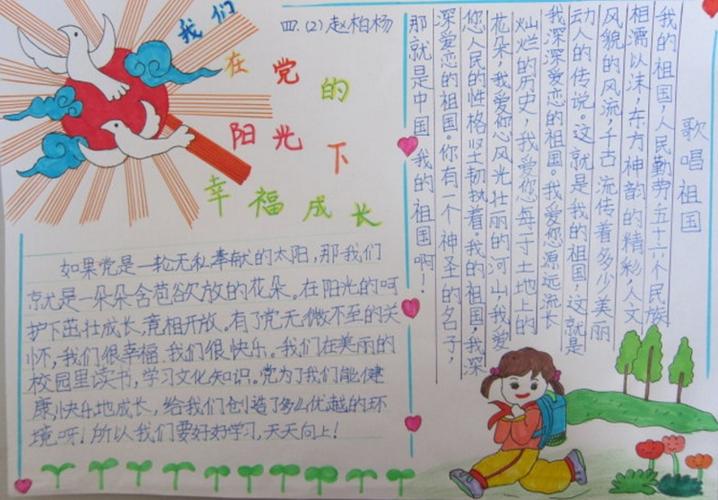 我们
在党的
阳光下
幸福成长
四.(2)赵柏杨
如果党是一轮无私奉献的太阳,那我们
就是一朵朵含苞欲放的花朵。在阳光的呵
护下茁壮成长,竞相开放。有了党无微不至的关
怀,我们很幸福,我们很快乐。我们在美丽的
校园里读书,学习文化知识。党为了我们能健
康快乐地成长,给我们创造了多么优越的环
境呀!所以我们要好好学习,天天向上!
歌唱祖国
我的祖国,人民勤劳,五十六个民族
相濡以沫,东方神韵的精彩,人文
风貌的风流,千古流传着多少美丽
动人的传说。这就是我的祖国,这就是
我深深爱恋的祖国。我爱您源远流长
灿烂的历史,我爱您每寸土地上的
花朵,我爱您风光壮丽的河山,我爱
您人民的性格坚韧执着。我的祖国,我深
深爱恋的祖国。你有一个神圣的名字,
那就是中国!我的祖国啊!